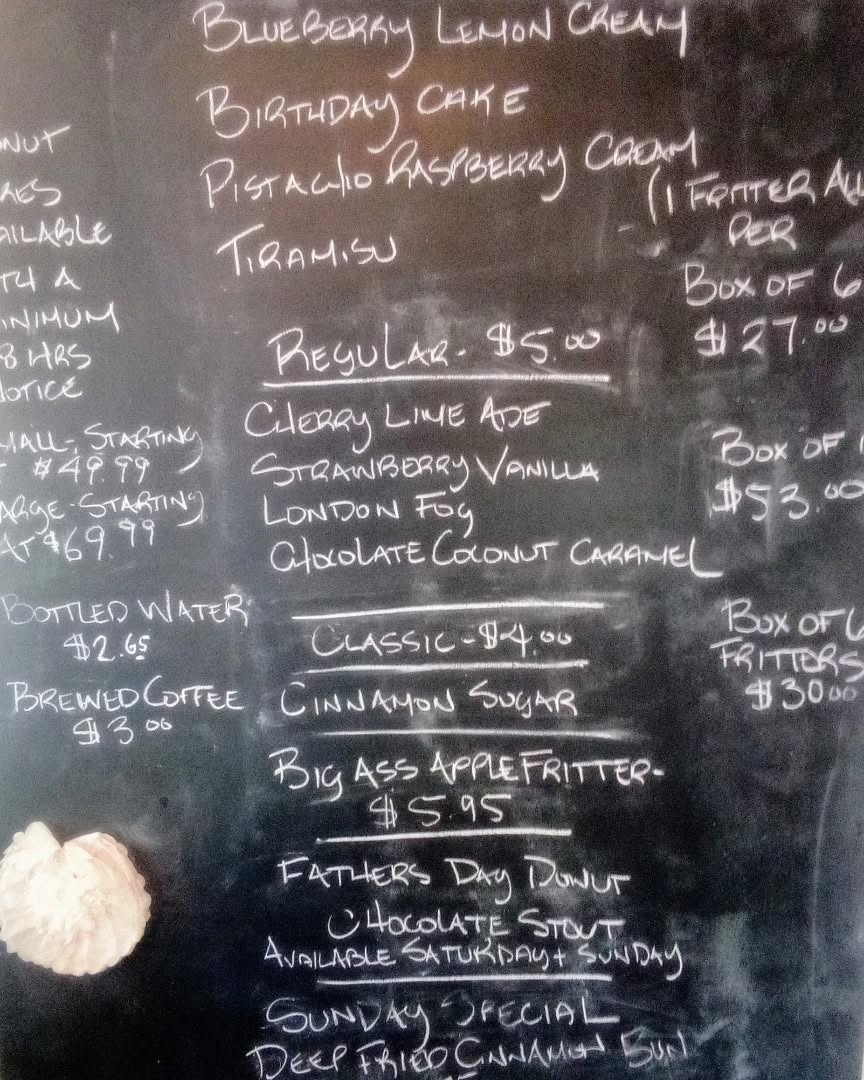 BLUEBERRY LEMON CREAM
BIRTHDAY CAKE
PISTACHIO RASPBERRY CREAM
TIRAMISU
REGULAR - $5.00
CHERRY LIME ADE
STRAWBERRY VANILLA
LONDON FOG
CHOCOLATE COCONUT CARAMEL
CLASSIC - $4.00
CINNAMON SUGAR
BIG ASS APPLE FRITTER -
$5.95
FATHERS DAY DONUT
CHOCOLATE STOUT
AVAILABLE SATURDAY + SUNDAY
SUNDAY SPECIAL
DEEP FRIED CINNAMON BUN
ONUT
KES
AILABLE
TH A
INIMUM
8 HRS
NOTICE
MALL - STARTING
$49.99
ARGE - STARTING
AT $69.99
BOTTLED WATER
$2.65
BREWED COFFEE
$3.00
(1 FRITTER ALL
PER
BOX OF 6
$27.00
BOX OF 1
$53.00
BOX OF 6
FRITTERS
$30.00